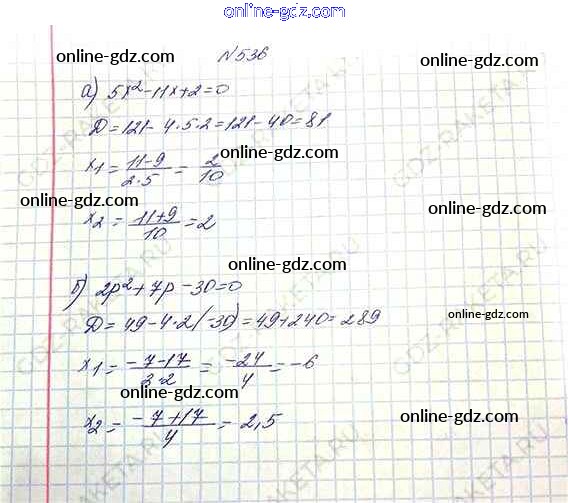 online-gdz.com
N536
online-gdz.com
online-gdz.com
а) 5x²-11x+2=0
D=121-4·5·2=121-40=81
online-gdz.com
x1=11-9/2·5=2/10
online-gdz.com
online-gdz.com
x2=11+9/10=2
online-gdz.com
б) 2p²+7p-30=0
D=49-4·2(-30)=49+240=289
online-gdz.com
x1=-7-17/2·2=-24/4=-6
online-gdz.com
online-gdz.com
x2=-7+17/4=2,5
GDZ-RAKETA.RU
GDZ-RAKETA.RU
GDZ-RAKETA.RU